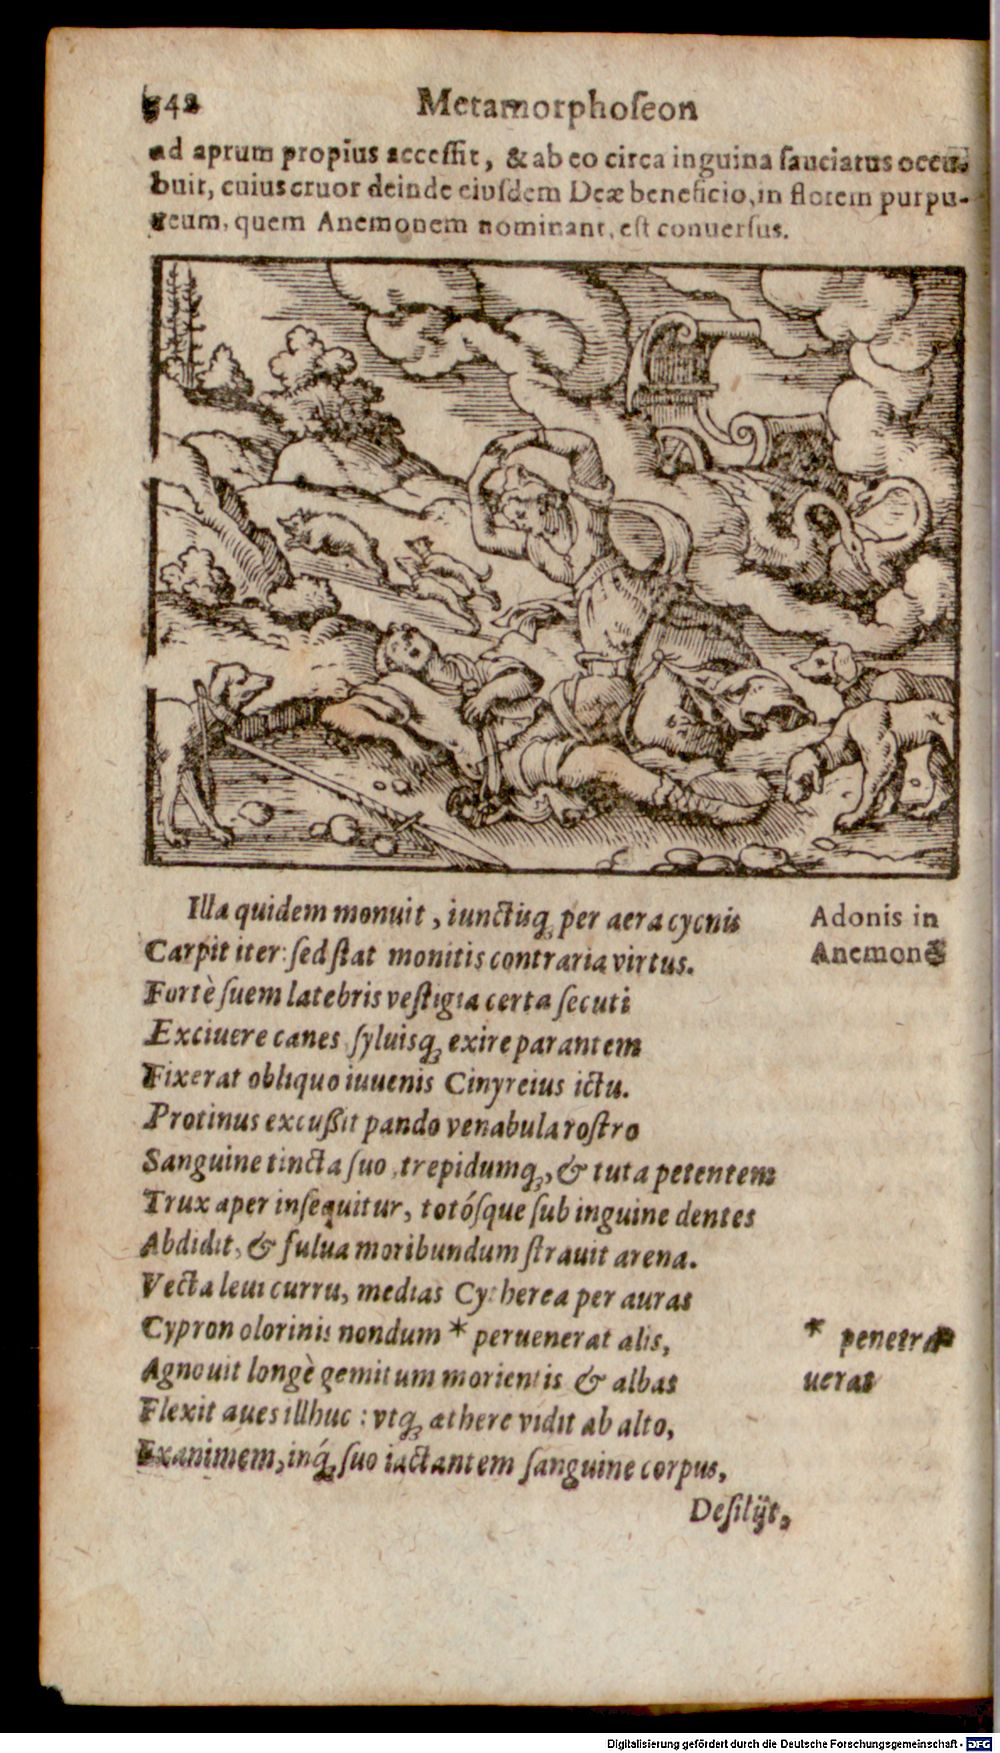 342 Metamorphoſeon
ad aprum propius acceſſit, & ab eo circa inguina ſauciatus occu-
buit, cuius cruor deinde eiuſdem Deæ beneficio, in florem purpu-
reum, quem Anemonem nominant, eſt conuerſus.
Illa quidem monuit, iunctisq́ per aera cycnis
Carpit iter: ſed ſtat monitis contraria virtus.
Fortè ſuem latebris veſtigia certa ſecuti
Exciuere canes ſyluisq́ exire parantem
Fixerat obliquo iuuenis Cinyreius ictu.
Protinus excußit pando venabula roſtro
Sanguine tincta ſuo, trepidumq́, & tuta petentem
Trux aper inſequitur, totósque ſub inguine dentes
Abdidit, & fulua moribundum ſtrauit arena.
Vecta leui curru, medias Cytherea per auras
Cypron olorinis nondum * peruenerat alis,
Agnouit longè gemitum morientis & albas
Flexit aues illhuc: vtq́ æthere vidit ab alto,
Exanimem, inq́ ſuo iactantem ſanguine corpus,
Deſilijt,
Adonis in
Anemonē
* penetra
uerat
Digitalisierung gefördert durch die Deutsche Forschungsgemeinschaft - DFG